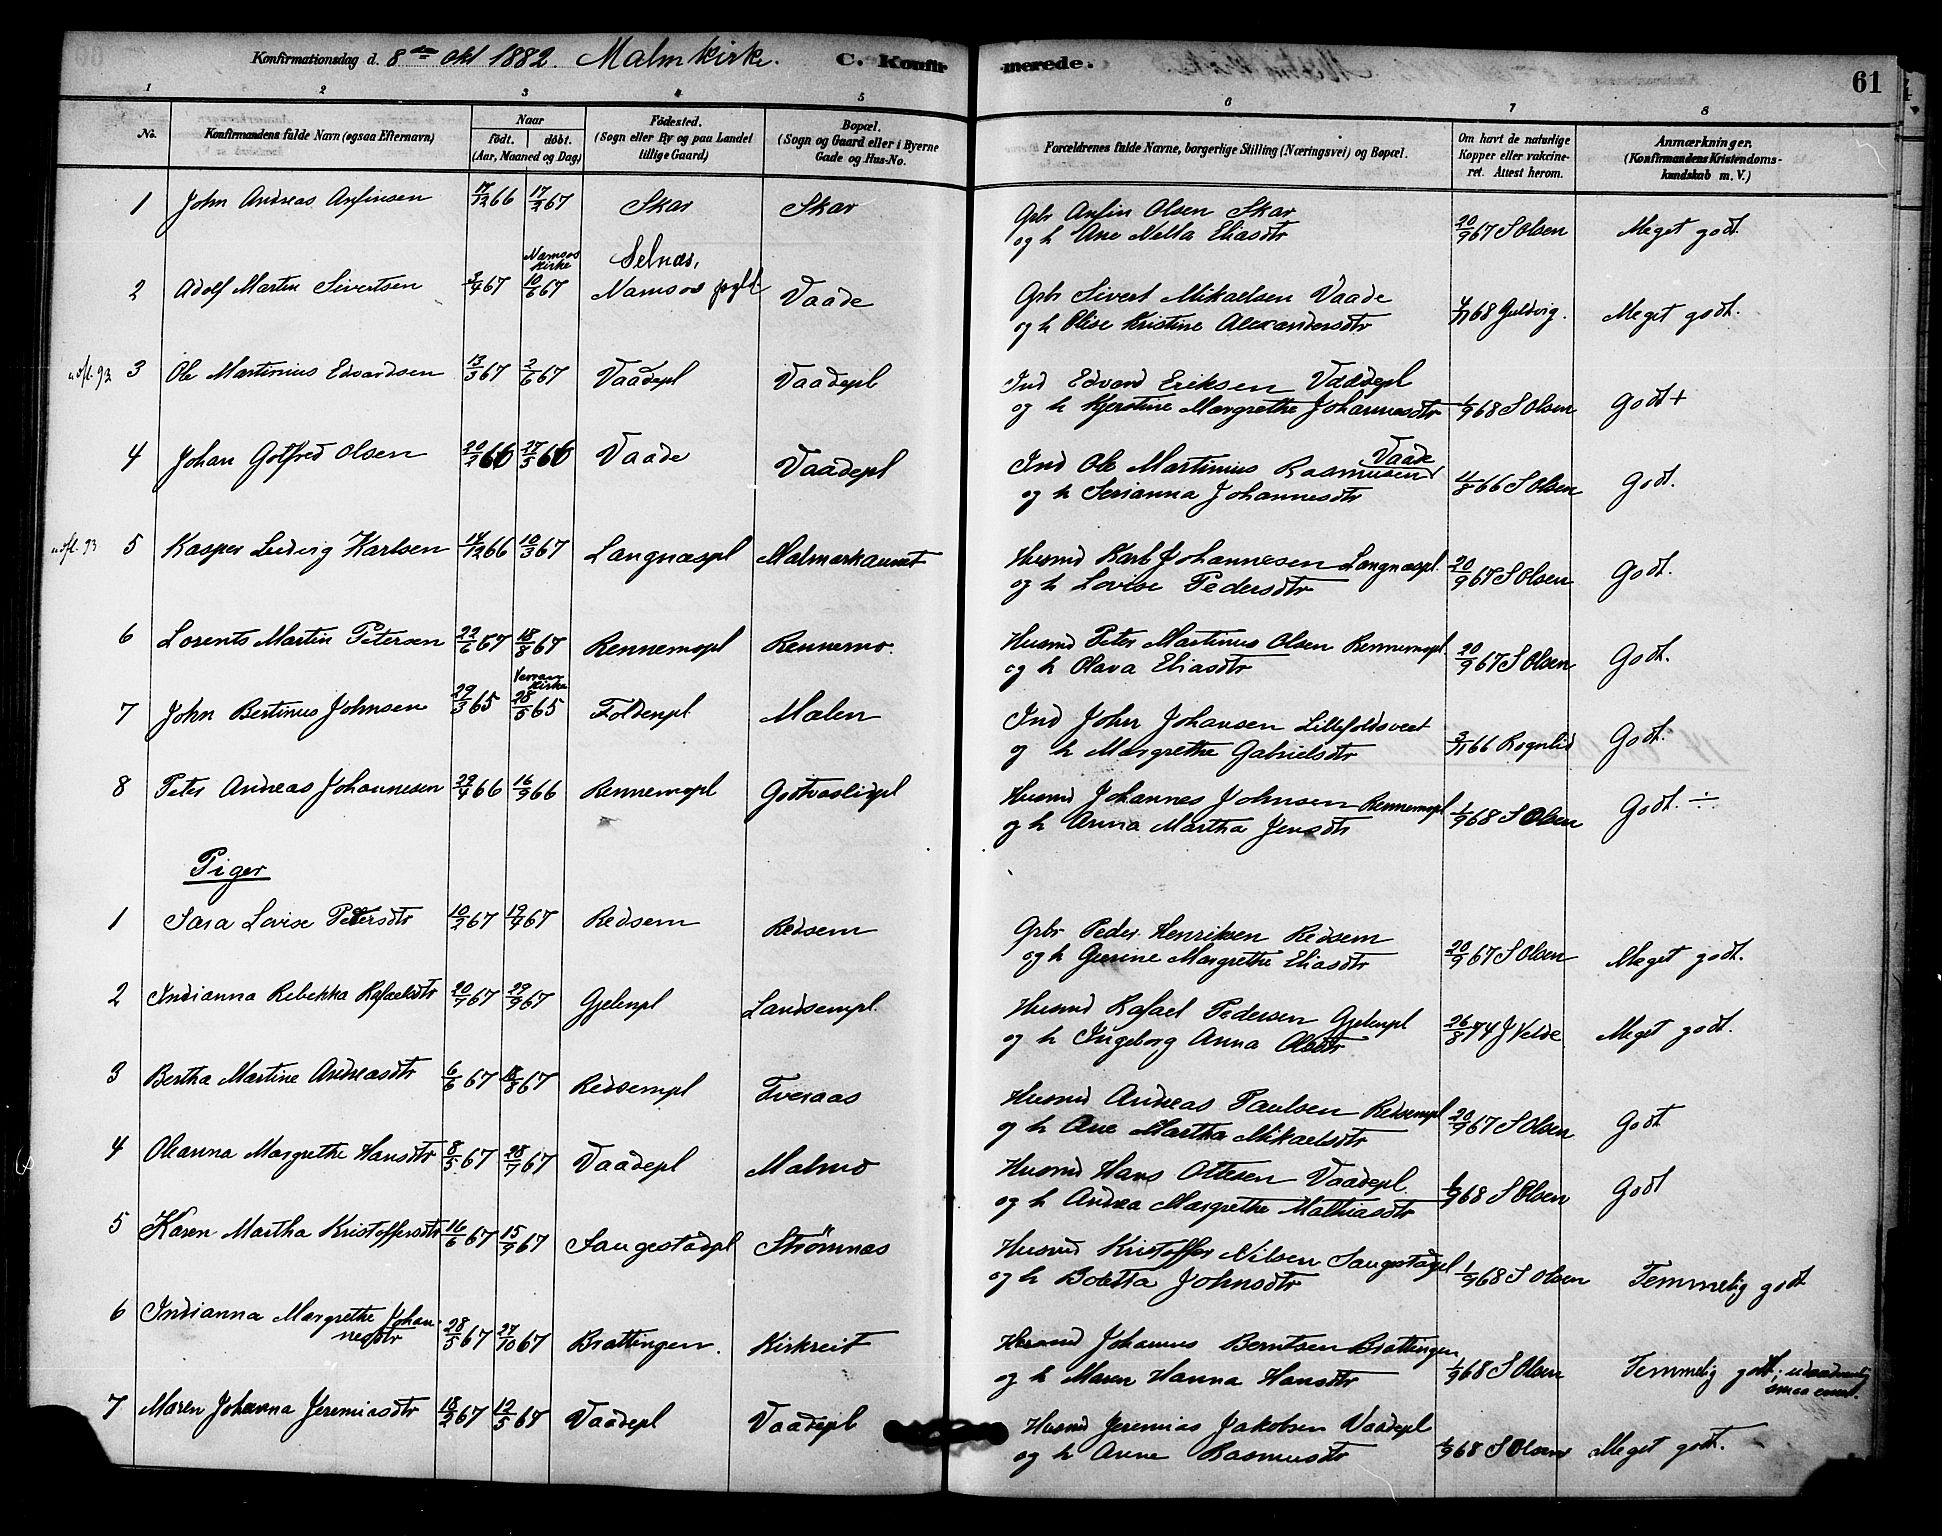 Konfirmationsdag d. 8de Okt 1882. Malm kirke. C. Konfirmerede. 61
1 2 3 4 5 6 7 8
No. Konfirmandens fulde Navn (ogsaa Efternavn) Naar født. døbt. (Aar, Maaned og Dag) Fødested. (Sogn eller By og paa Landet tillige Gaard) Bopæl. (Sogn og Gaard eller i Byerne Gade og Hus-No. Forældrenes fulde Navne, borgerlige Stilling (Næringsvei) og Bopæl. Om havt de naturlige Kopper eller vakcineret. Attest herom. Anmærkninger. (Konfirmandens Kristendomskundskab m. V.)
1 John Andreas Anfinsen 17/12 66 17/2 67 Skar Skar Gbr Anfin Olsen Skar 20/9 67 S Olsen Meget godt.
og h Ane Nella Eliasdtr
Namsos kirke Selnæs,
2 Adolf Martin Sivertsen 3/4 67 10/6 67 Namsos prgld Vaade Gbr Sivert Mikaelsen Vaade 4/11 68 Guldvig. Meget godt.
og h Olise Kristine Alexandersdtr
udfl. 93 3 Ole Martinius Edvardsen 13/3 67 2/6 67 Vaadepl Vaadepl Ind Edvard Eriksen Vaadepl 1/9 68 S Olsen Godt +
og h Kjerstine Margrethe Johannesdtr
4 Johan Gotfred Olsen 20/2 66 27/5 66 Vaade Vaadepl Ind Ole Martinius Rasmussen Vaade 4/8 66 S Olsen Godt.
og h Serianna Johannesdtr
udfl. 93 5 Kasper Ludvig Karlsen 14/12 66 10/3 67 Langnæspl Malmarkaunet Husmd Karl Johannesen Langnæspl. 20/9 67 S Olsen Godt.
og h Lovise Pedersdtr
6 Lorents Martin Petersen 22/6 67 18/8 67 Rennemopl Rennemo. Husmd Peter Martinus Olsen Rennemopl 20/9 67 S Olsen Godt.
og h Olava Eliasdtr
Verran kirke
7 John Bertinus Johnsen 29/3 65 28/5 65 Foldenpl Malen Ind John Johansen Lillefoldsveet 3/11 66 Rognlid Godt.
og h Margrethe Gabrielsdtr
8 Peter Andreas Johannesen 29/4 66 16/9 66 Rennemopl Godtvaslipl Husmd Johannes Johnsen Rennemopl 1/9 68 S Olsen Godt. ÷
og h Anna Martha Jensdtr
Piger
1 Sara Lovise Petersdtr 10/2 67 19/4 67 Redsem Redsem Gbr Peder Henriksen Redsem 20/9 67 S Olsen Meget godt.
og h Gurine Margrethe Eliasdtr
2 Indianna Rebekka Rafaelsdtr 20/7 67 29/9 67 Gjelenpl Landsempl. Husmd Rafael Pedersen Gjelenpl 26/8 74 J Velde Meget godt.
og h Ingeborg Anna Olsdtr
3 Bertha Martine Andreasdtr 6/6 67 18/8 67 Redsempl Tveraas Husmd Andreas Paulsen Redsempl 20/9 67 S Olsen Godt
og h Ane Martha Mikaelsdtr
4 Oleanna Margrethe Hansdtr 8/5 67 28/7 67 Vaadepl Malmo Husmd Hans Ottesen Vaadepl. 1/9 68 S Olsen Godt
og h Andrea Margrethe Mathiasdtr
5 Karen Martha Kristoffersdtr 16/6 67 15/9 67 Saugestadpl Strømnæs Husmd Kristoffer Nilsen Saugestadpl 1/9 68 S Olsen Temmelig godt
og h Boletta Johnsdtr
6 Indianna Margrethe Johannesdtr 28/5 67 27/10 67 Brattingen. Kirkreit Husmd Johannes Berntsen Brattingen 1/9 68 S Olsen Temmelig godt, usædvanlig smaa evner.
og h Maren Hanna Hansdtr
7 Maren Johanna Jeremiasdtr 18/2 67 12/5 67 Vaadepl Vaadepl Husmd Jeremias Jakobsen Vaadepl 1/9 68 S Olsen Meget godt.
og h Anne Rasmusdtr